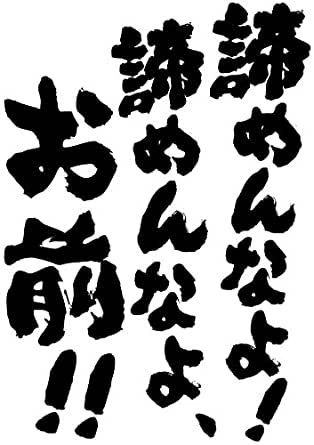 諦めんなよ!
諦めんなよ、
お前!!